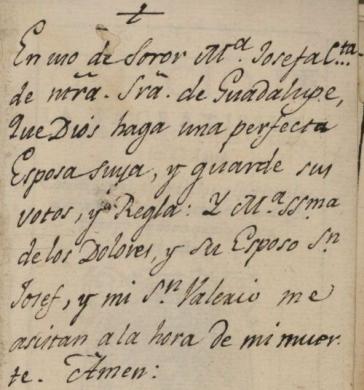 En uso de Soror Mª. Josefa C..ta
de ntrã. Srã. de Guadalupe,
Que Dios haga una perfecta
Esposa suya, y guarde sus
votos, y Regla: Y Mª SSma
de los Dolores, y su Esposo Sn
Josef, y mi Sn Valerio me
asistan a la hora de mi muer-
te. Amen: